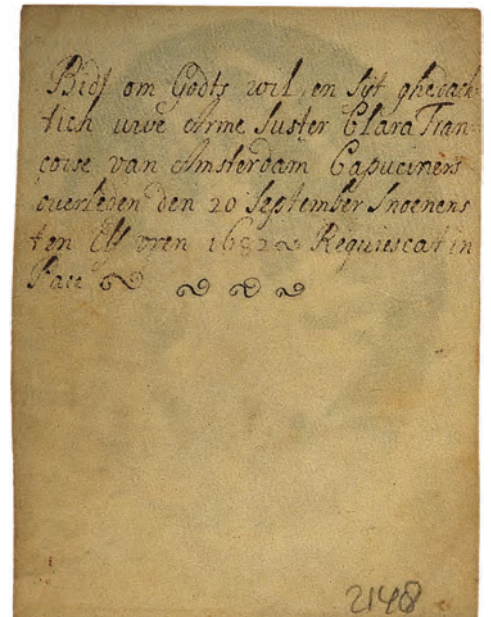 Bidt om Godts wil, en sijt ghedach-
tich uwe Arme suster Clara Fran-
coise van Amsterdam Capuciners
overleden den 20 September snoenens
ten Elf vren 1682 Requiescat in
Pace
2148